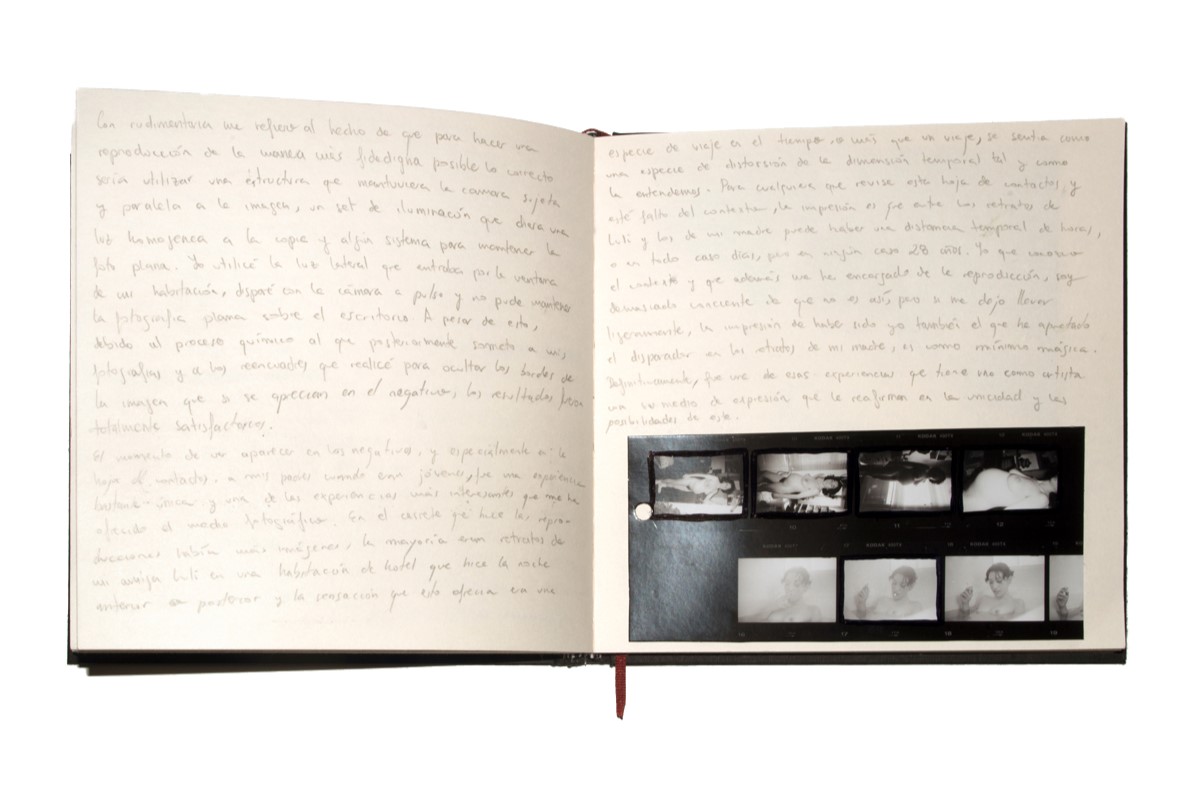 Con rudimentaria me refiero al hecho de que para hacer una
reproducción de la manera más fidedigna posible lo correcto
sería utilizar una éstructura que mantuviera la cámara sujeta
y paralela a la imagen, un set de iluminación que diera una
luz homogenea a la copia y algún sistema para mantener la
foto plana. Yo utilicé la luz lateral que entraba por la ventana
de mi habitación, disparé con la cámara a pulso y no pude mantener
la fotografía plana sobre el escritorio. A pesar de esto,
debido al proceso químico al que posteriormente someto a mis
fotografías y a los reencuadres que realicé para ocultar los bordes de
la imagen que si se aprecian en el negativo, los resultados fueron
totalmente satisfactorios.
El momento de ver aparecer en los negativos, y especialmente en la
hoja de contactos, a mis padres cuando eran jóvenes, fue una experiencia
bastante única y una de las experiencias más interesantes que me ha
ofrecido el medio fotográfico. En el carrete que hice las repro-
ducciones había más imágenes, la mayoría eran retratos de
mi amiga Luli en una habitación de hotel que hice la noche
anterior posterior y la sensación que esto ofrecía era una
especie de viaje en el tiempo o más que un viaje, se sentía como
una especie de distorsión de la dimensión temporal tal y como
la entendemos. Para cualquiera que revise esta hoja de contactos, y
esté falto del contexto, la impresión es que entre los retratos de
Luli y los de mi madre puede haber una distancia temporal de horas,
o en todo caso días, pero en ningún caso 28 años. Yo que conozco
el contexto y que además me he encargado de la reproducción, soy
demasiado conciente de que no es así, pero si me dejo llever
ligeramente, la impresión de haber sido yo también el que ha apretado
el disparador en los retratos de mi madre, es como mínimo mágica.
Definitivamente, fue una de esas experiencias que tiene uno como artista
con su medio de expresión que le reafirman en la unicidad y las
posibilidades de este.
KODAK
10 11 12
KODAK
16 17 18 19